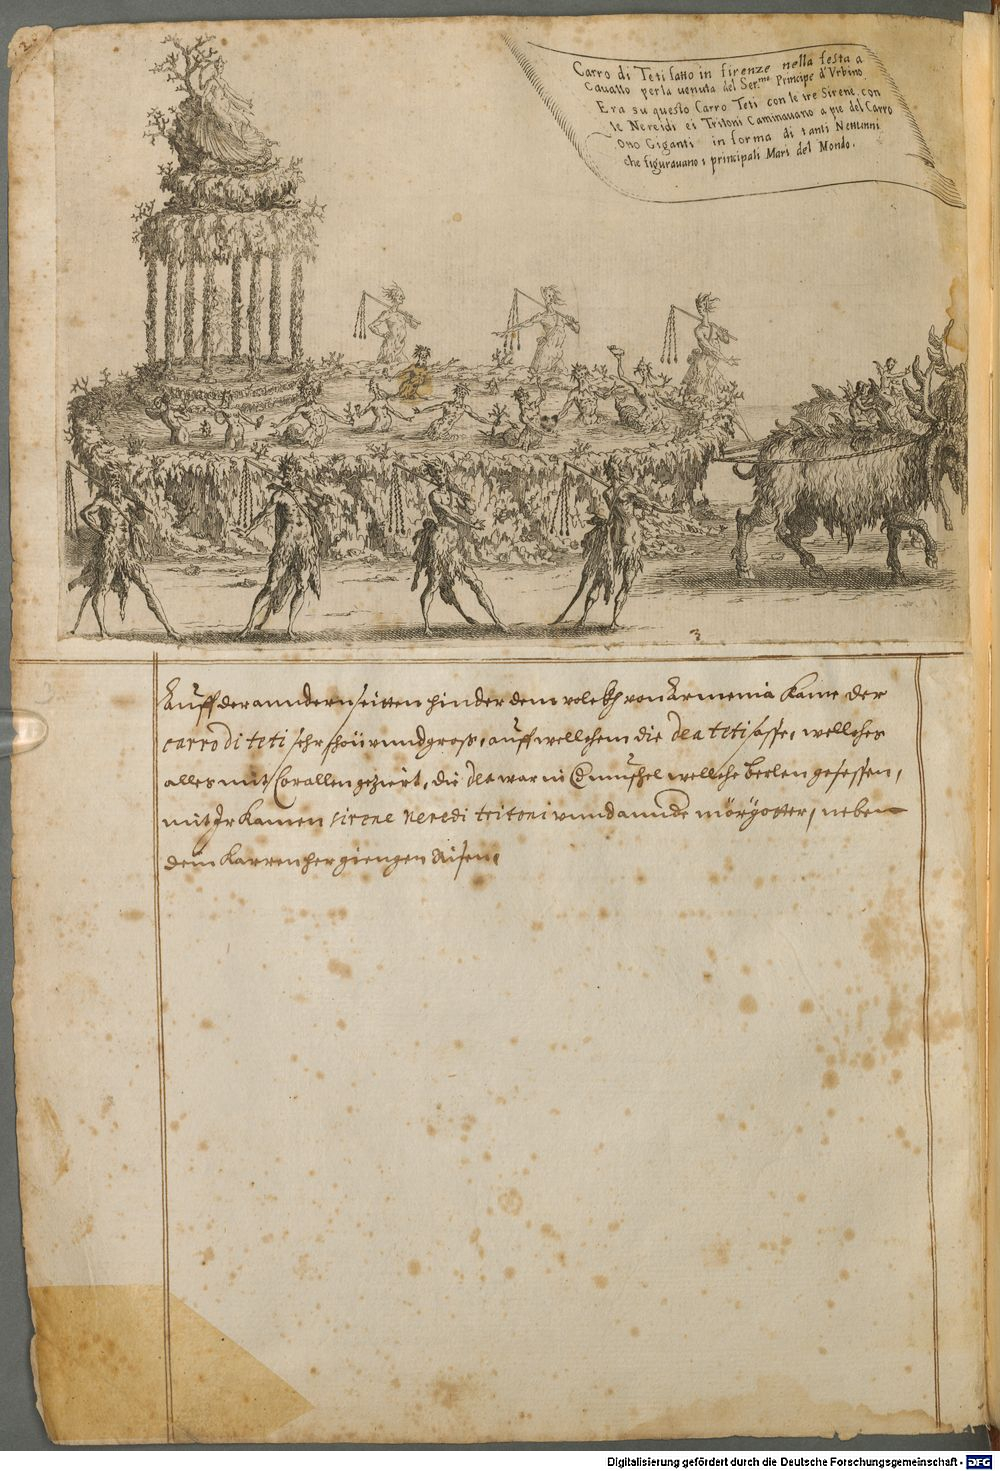 2.
Carro di Teti fatto in firenze nella festa a
Cauallo per la uenuta del Ser.mo Principe d'Vrbino.
Era su questo Carro Teti con le tre Sirene con
le Nereidi ei Tritoni Caminauano a pie del Carro
otto Giganti in forma di tanti Nettunni
che figurauano i principali Mari del Mondo.
3
3
Auff der anndern seitten hinder dem volckh von Armenia kame der
carro di teti sehr schön unnd gross, auff wellchem die dea teti sasse, wellches
alles mit Corallen geziert, die dea war in muschel wellche berlen gesessen,
mit Jr kamen sirene neredi tritoni unnd annde mörgötter, neben
dem karren her giengen Risen.
Digitalisierung gefördert durch die Deutsche Forschungsgemeinschaft - DFG